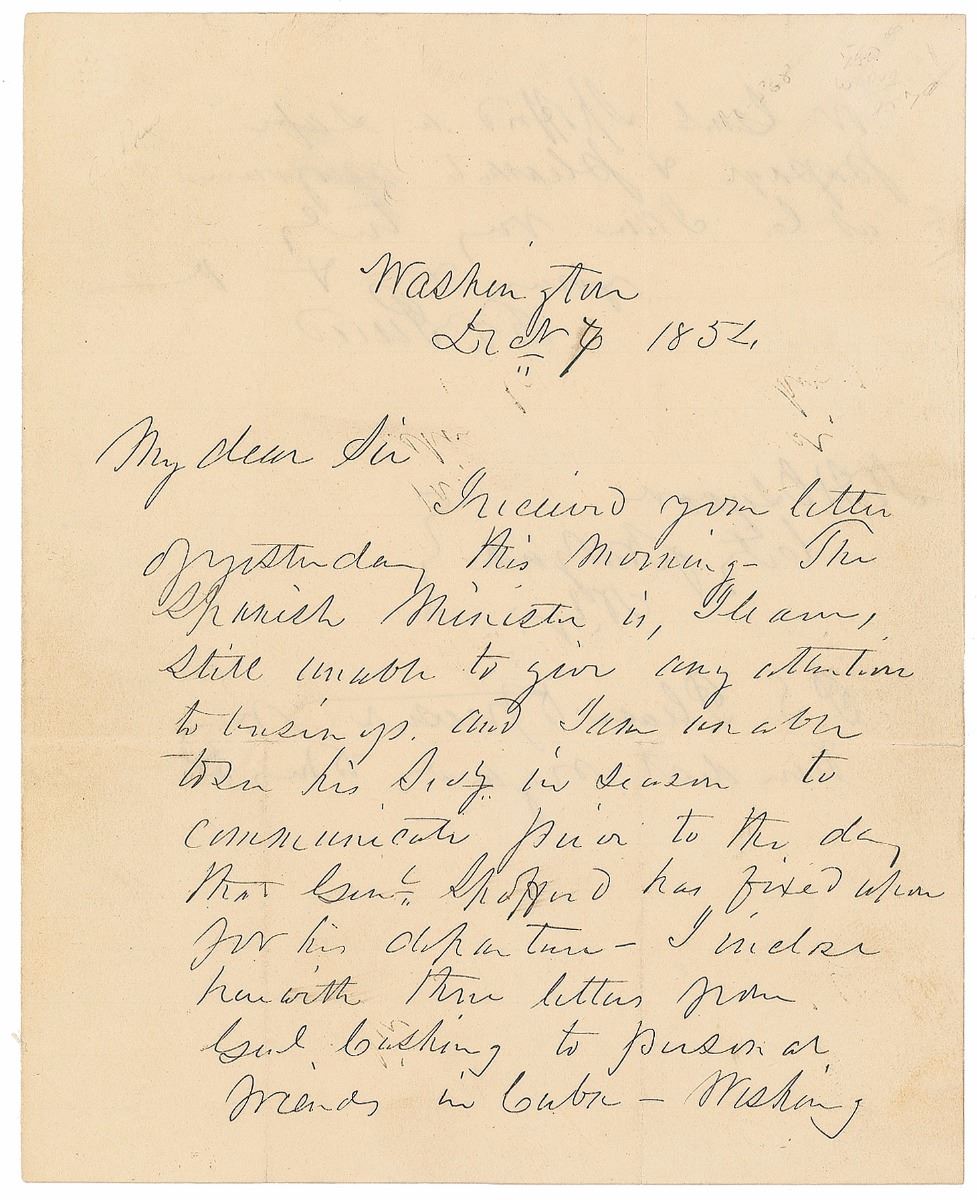 Washington
1852.
My dear Sir
I received your letter
of yesterday this morning - The
Spanish Minister is, I learn,
still unable to give any attention
to business. and I am unable
to see his Secty. in season to
communicate prior to the day
that Genl. Spofford has fixed upon
for his departure - I inclose
herewith three letters from
Genl Cushing to personal
friends in Cuba - Wishing